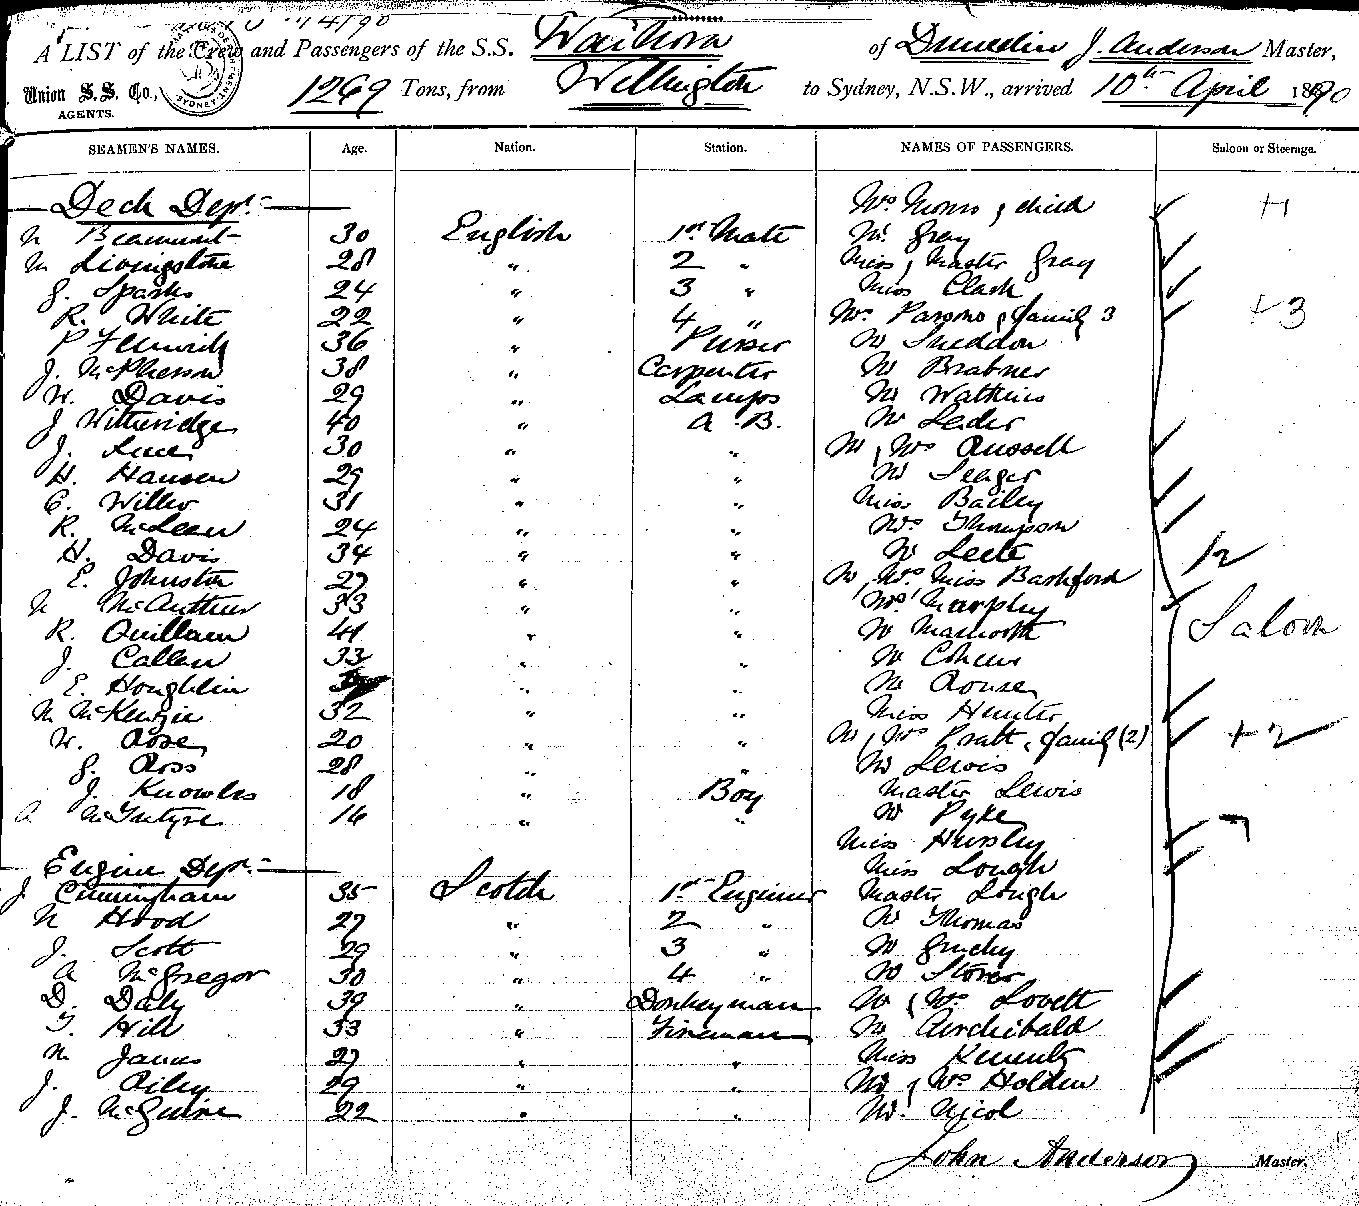 A LIST of the Crew and Passengers of the S.S. Waihora of Dunedin J. Anderson Master,
Union S. S. Co., AGENTS. 1269 Tons, from Wellington to Sydney, N.S.W., arrived 10th April 1890
SEAMEN'S NAMES. Age. Nation. Station. NAMES OF PASSENGERS. Saloon or Steerage.
Deck Dept. Mrs Monro & child +1
Beaumont 30 English 1st Mate Mr Gray
M Livingstone 28 " 2 " Miss & Master Gray
G. Sparks 24 " 3 " Miss Clark
R. White 22 " 4 " Mrs Parsons & family 3 +3
P Fenwick 36 " Purser Mr Sneddon
J. McPherson 38 " Carpenter Mr Brabner
W. Davis 29 " Lamps Mr Watkins
J Witheridge 40 " A.B. Mr Leder
J. 30 " " Mr & Mrs Russell
H. Hansen 29 " " Mr Seager
C. Willis 31 " " Miss Bailey
R. McLean 24 " " Mrs Thompson
H. Davis 34 " " Mr Leete 12
E. Johnston 27 " " Mr, Mrs Miss Bashford
McArthur 33 " " Mrs Murphy Saloon
R. Quillam 41 " " Mr
J. Callan 33 " " Mr Cohen
E. Houghlin " " Mr Rouse
M McKenzie 32 " " Miss Hunter
W. Rose 20 " " Mr & Mrs Pratt & family (2) +2
G. Ross 28 " " Mr Lewis
J. Knowles 18 " Boy Master Lewis
A McIntyre 16 " " Mr Pyke 7
Miss Hursley
Engine Dept. Miss Lough
J Cunningham 35 Scotch 1st Engineer Master Lough
Hood 27 " 2 " Mr Thomas
J. Scott 29 " 3 " Mr Gruchy
A McGregor 30 " 4 " Mr Storer
D. Daly 39 " Donkeyman Mr & Mrs Lovett
T. Hill 33 " Fireman Mr Archibald
James 27 " " Miss
J. Riley 29 " " Mr & Mrs Holden
J. McGuire 22 " " Mr. Nicol
John Anderson Master.